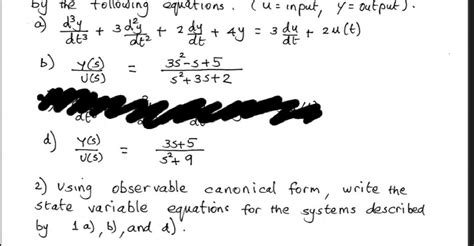 by the following equations. (u = input, y = output).
a) d³y/dt³ + 3 d²y/dt² + 2 dy/dt + 4y = 3 du/dt + 2u(t)
b) Y(s)/U(s) = 3s²-s+5/s²+3s+2
d) Y(s)/U(s) = 3s+5/s²+9
2) Using observable canonical form, write the
state variable equations for the systems described
by 1a), b), and d).